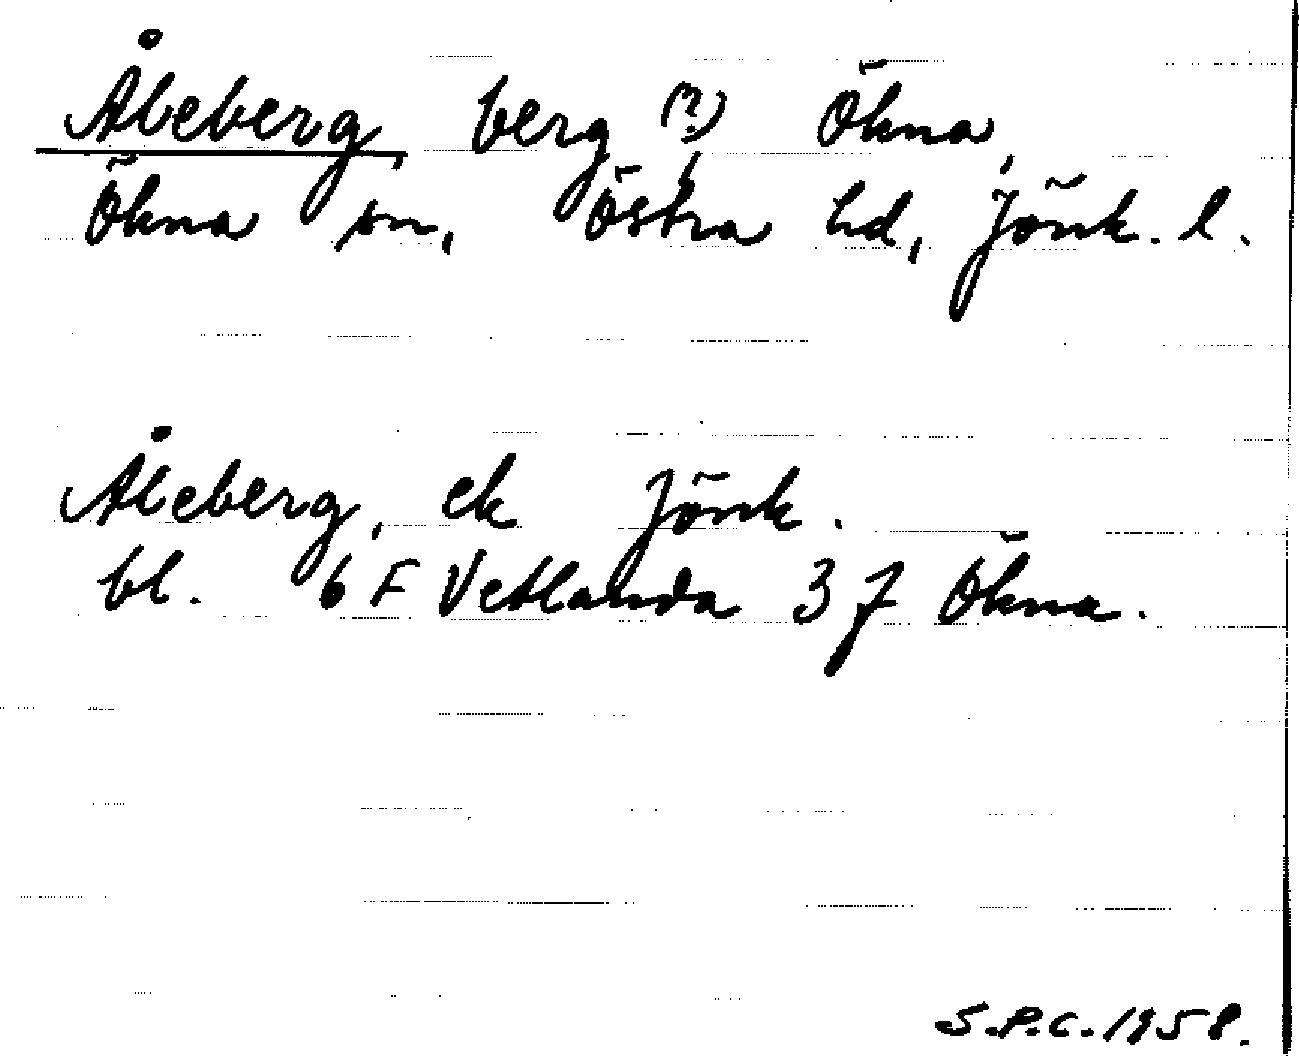 Åbeberg, berg (?), Ökna,
Ökna sn, Östra hd, Jönk. l.
Åbeberg, ek Jönk.
bl. 6 F Vetlanda 37 Ökna.
S.P.C. 1958.